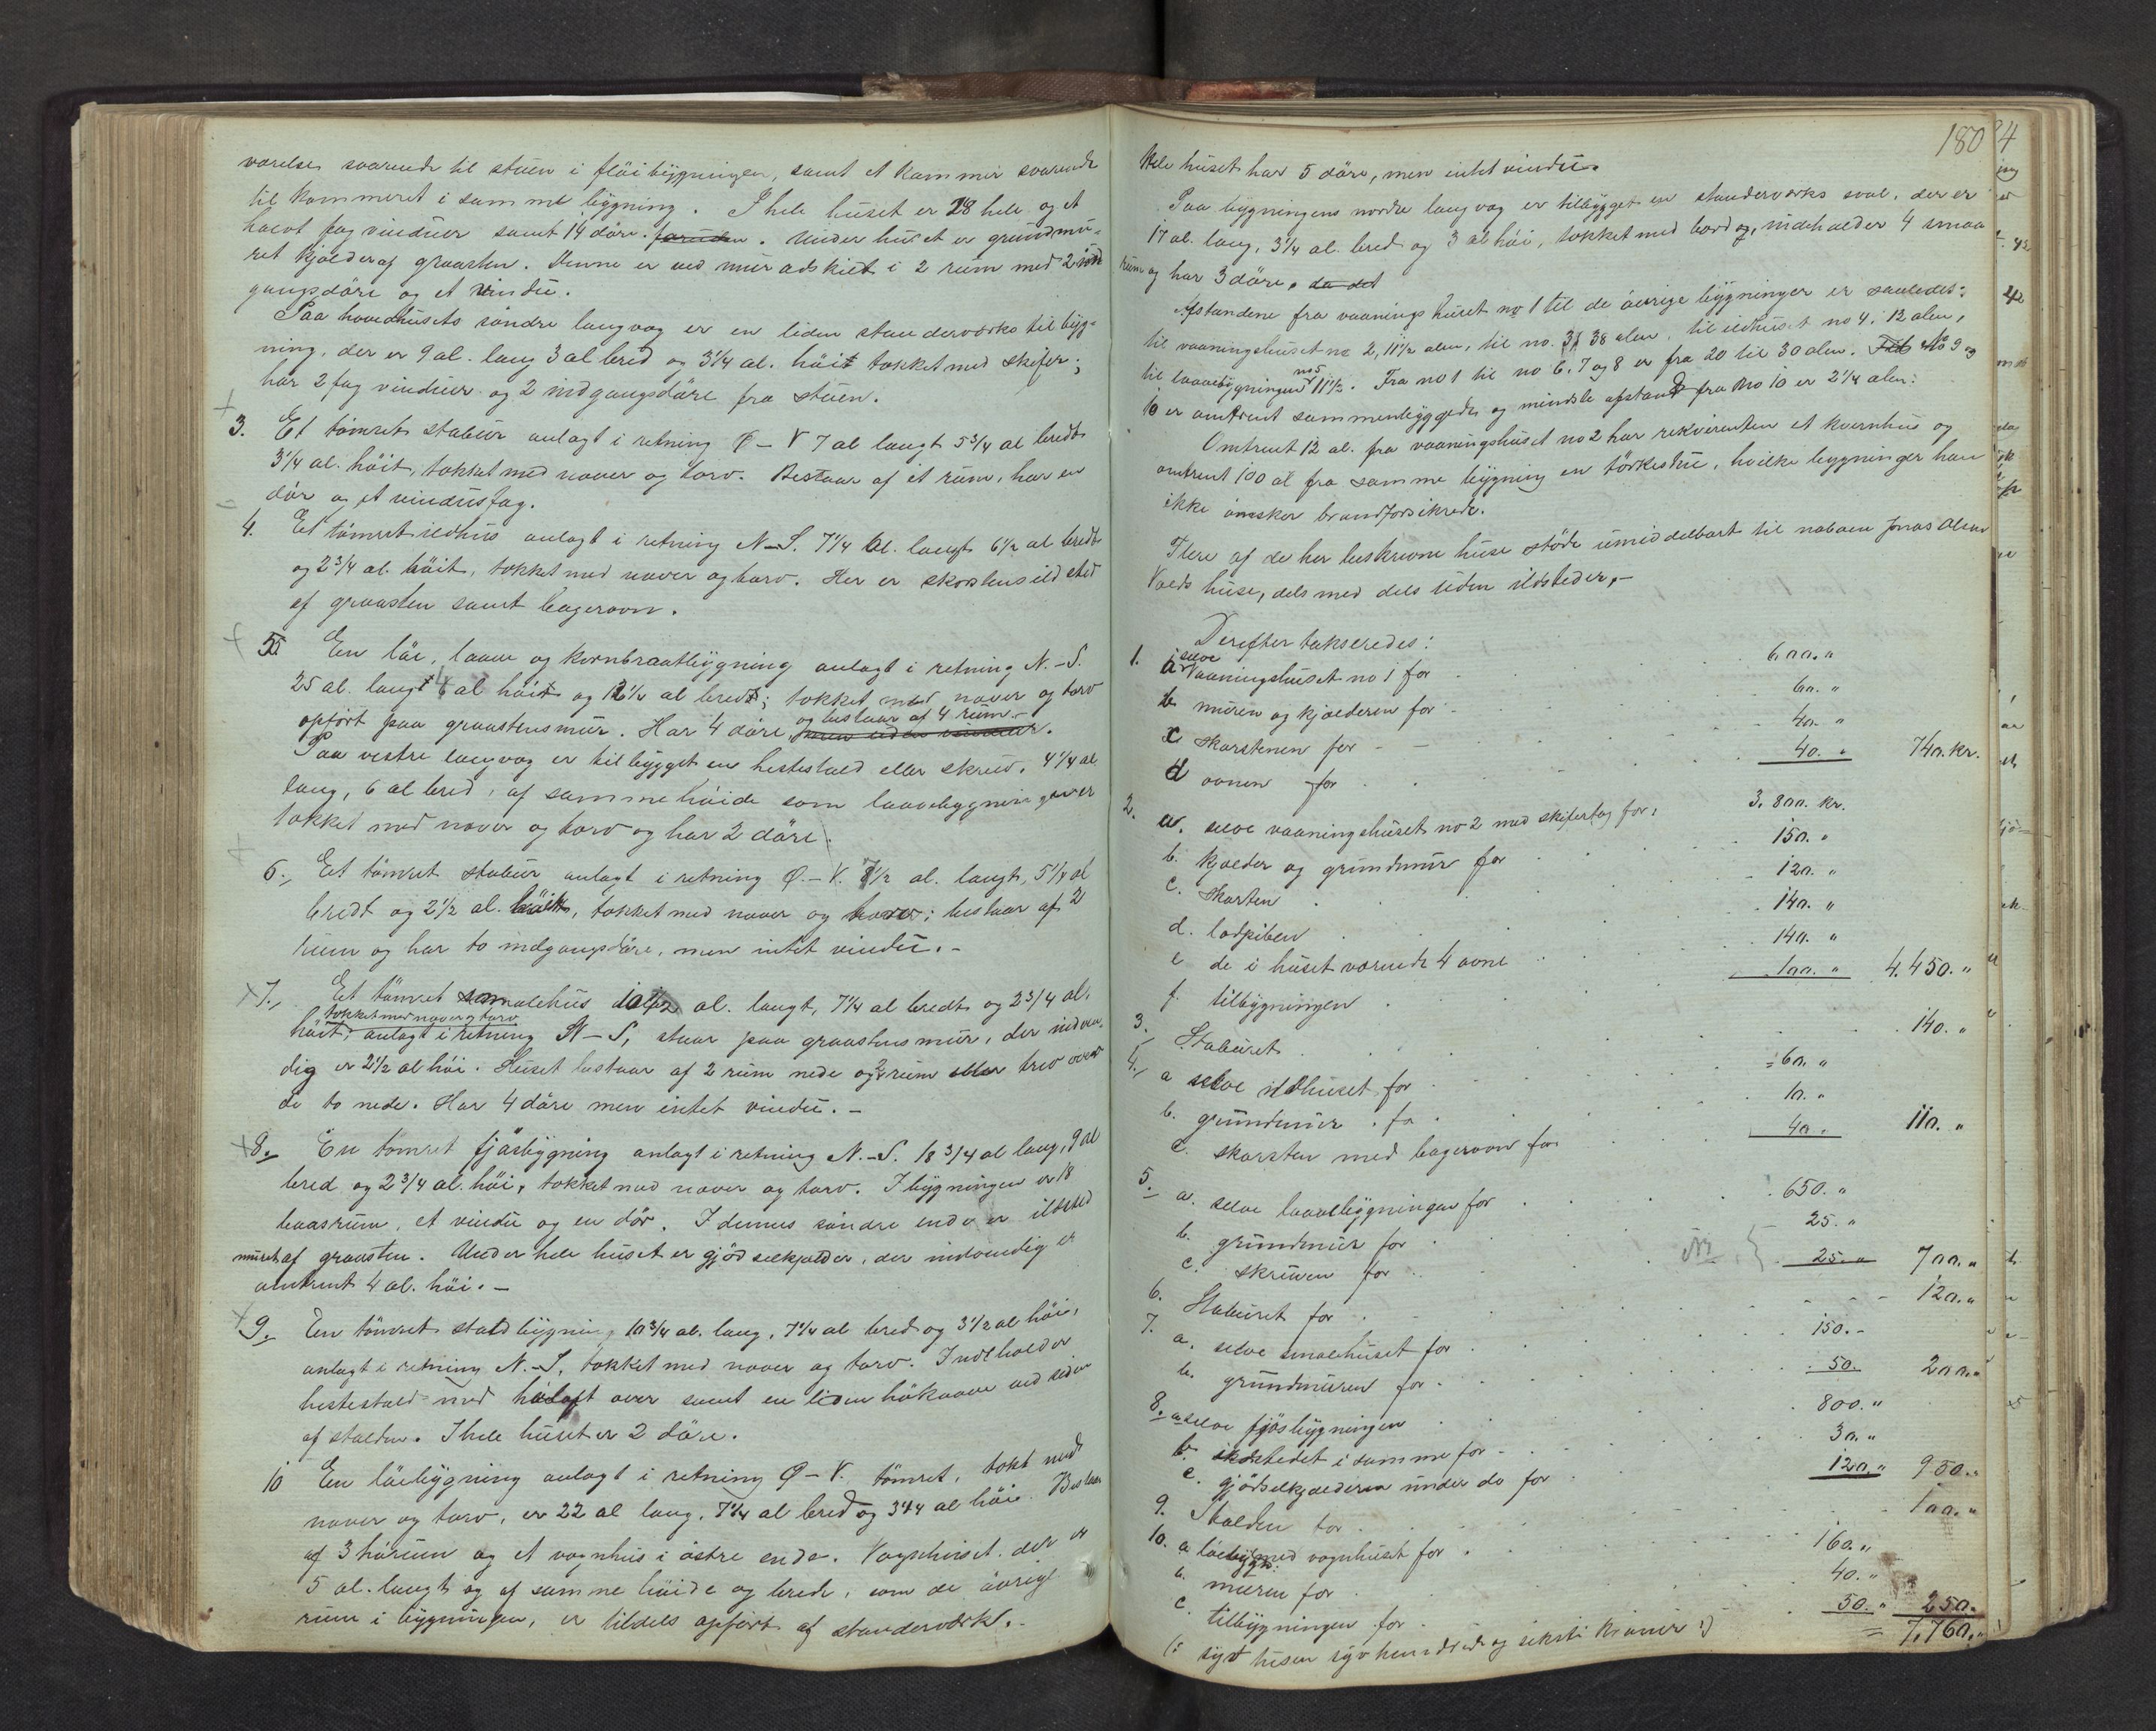 værelse svarende til stuen i flöibygningen, samt et kammer svarende
til kammeret i samme bygning. I hele huset er 28 hele og et
halvt fag vinduer samt 14 döre. foruden. Under huset er grundmu-
ret kjælder af graasten. Denne er ved mur adskilt i 2 rum med 2 ind
gangsdöre og et vindu.
Paa hovedhusets söndre langvæg er en liden standerværks tilbyg-
ning, der er 9 al. lang 3 al bred og 3 1/4 al. höit tækket med skifer;
har 2 fag vinduer og 2 indgangsdöre fra stuen.
3. Et tömret stabur anlagt i retning Ø - V 7 al langt 5 3/4 al bredt
3 1/4 al. höit, tækket med næver og torv. Bestaar af ét rum, har en
dör og et vindusfag.
4. Et tömret ildhus anlagt i retning N-S. 7 1/4 al. langt 6 1/2 al bredt
og 2 3/4 al. höit, tækket med næver og torv. Her er skorstensildsted
af graasten samt bagerovn.
5. En löe, laave og kornbraatbygning anlagt i retning N.-S.
25 al. langt 6 al höit og 12 1/2 al bredt; tækket med næver og torv
opfört paa graastensmur. Har 4 döre, og bestaar af 4 rum.-
Paa vestre langvæg er tilbygget en hestestald eller skrue, 4 1/4 al
lang, 6 al bred, af samme höide som laavebygningen er
tækket med næver og torv og har 2 döre.
6., Et tömret stabur anlagt i retning Ø.-V. 7 1/2 al. langt, 5 1/4 al
bredt og 2 1/2 al. höit, tækket med næver og torv; bestaar af 2
rum og har to indgangsdöre, men intet vindu.-
7., Et tömret smalehus 10 1/2 al. langt, 7 1/4 al bredt og 2 3/4 al.
tækket med næver og torv
höit, anlagt i retning N-S, staar paa graastensmur, der indven-
dig er 2 1/2 al höi. Huset bestaar af 2 rum nede og 2 rum eller trev over
de to nede. Har 4 döre men intet vindu.-
8., En tömret fjösbygning anlagt i retning N.-S. 18 3/4 al lang, 9 al
bred og 2 3/4 al. höi, tækket med næver og torv. I bygningen er 18
baasrum, et vindu og en dör. I dennes söndre ende er ildsted
muret af graasten. Under hele huset er gjödselkjælder, der indvendig er
omtrent 4 al. höi.-
9., En tömret staldbygning 10 3/4 al. lang, 7 1/4 al bred og 3 1/2 al höi,
anlagt i retning N.-S, tækket med næver og torv. Indeholder
hestestald med höloft over samt en liden hökaave ved siden
af stalden. I hele huset er 2 döre.
10 En löebygning anlagt i retning Ø-V. tömret, tækt med
næver og torv, er 22 al lang, 7 1/4 al bred og 3 1/4 al höi. Bestaar
af 3 hörum og et vognhus i östre ende. Vognhuset der er
5 al. langt og af samme höide og brede, som de övrige
rum i bygningen, er tildels opfört af standerværk.-
180
Hele huset har 5 döre, men intet vindu.
Paa bygningens nordre langvæg er tilbygget en standerværks sval, der er
17 al. lang, 3 1/4 al. bred og 3 al höi, tækket med bord og indeholder 4 smaa
rum og har 3 döre. da det
Afstandene fra vaaningshuset no 1 til de övrige bygninger er saaledes:
til vaaningshuset no 2, 11 1/2 alen, til no. 3, 38 alen, til ildhuset no 4, 12 alen,
til laavebygningen no 5 11 1/2. Fra no 1 til no 6, 7 og 8 er fra 20 til 30 alen. Til No 9 og
10 er omtrent sammenbyggede og mindste afstand fra No 10 er 2 1/4 alen.
Omtrent 12 al. fra vaaningshuset no 2 har rekvirenten et kvernhus og
omtrent 100 al fra samme bygning en törkestue, hvilke bygninger han
ikke önsker brandforsikrede.
Flere af de her beskrevne huse stöde umiddelbart til naboen Jonas Olsen
Volds huse, dels med dels uden ildsteder.-
Derefter takseredes:
1. a selve vaaningshuset no 1 for 600. "
b muren og kjælderen for 60. "
c skorstenen for 40. "
d ovnen for 40. " 740. kr.
2. a. selve vaaningshuset no 2 med skifertag for: 3,800. kr.
b. kjælder og grundmur for 150. "
c. skorsten 120. "
d. lodpiben 140. "
e de i huset værende 4 ovne 140. "
f. tilbygningen 100. " 4,450. "
3., Staburet 140. "
4., a selve ildhuset for 60. "
b. grundmur for 10. "
c. skorsten med bagerovn for 40. " 110. "
5. a. selve laavebygningen for 650. "
b. grundmur for 25. "
c. skruen for 25. " 700. "
6. Staburet for 120. "
7. a. selve smalehuset for 150. -
b. grundmuren for 50. 200. "
8. a selve fjösbygningen 800. "
b. ildstedet i samme for 30. "
c. gjödselkjælderen under do for 120. " 950. "
9. Stalden for 100. "
10. a. löebygn. med vognhuset for 160. "
b. muren for 40. "
c. tilbygningen for 50. " 250.
(: syv tusen syv hundrede og seksti kroner :) = 7,760. "